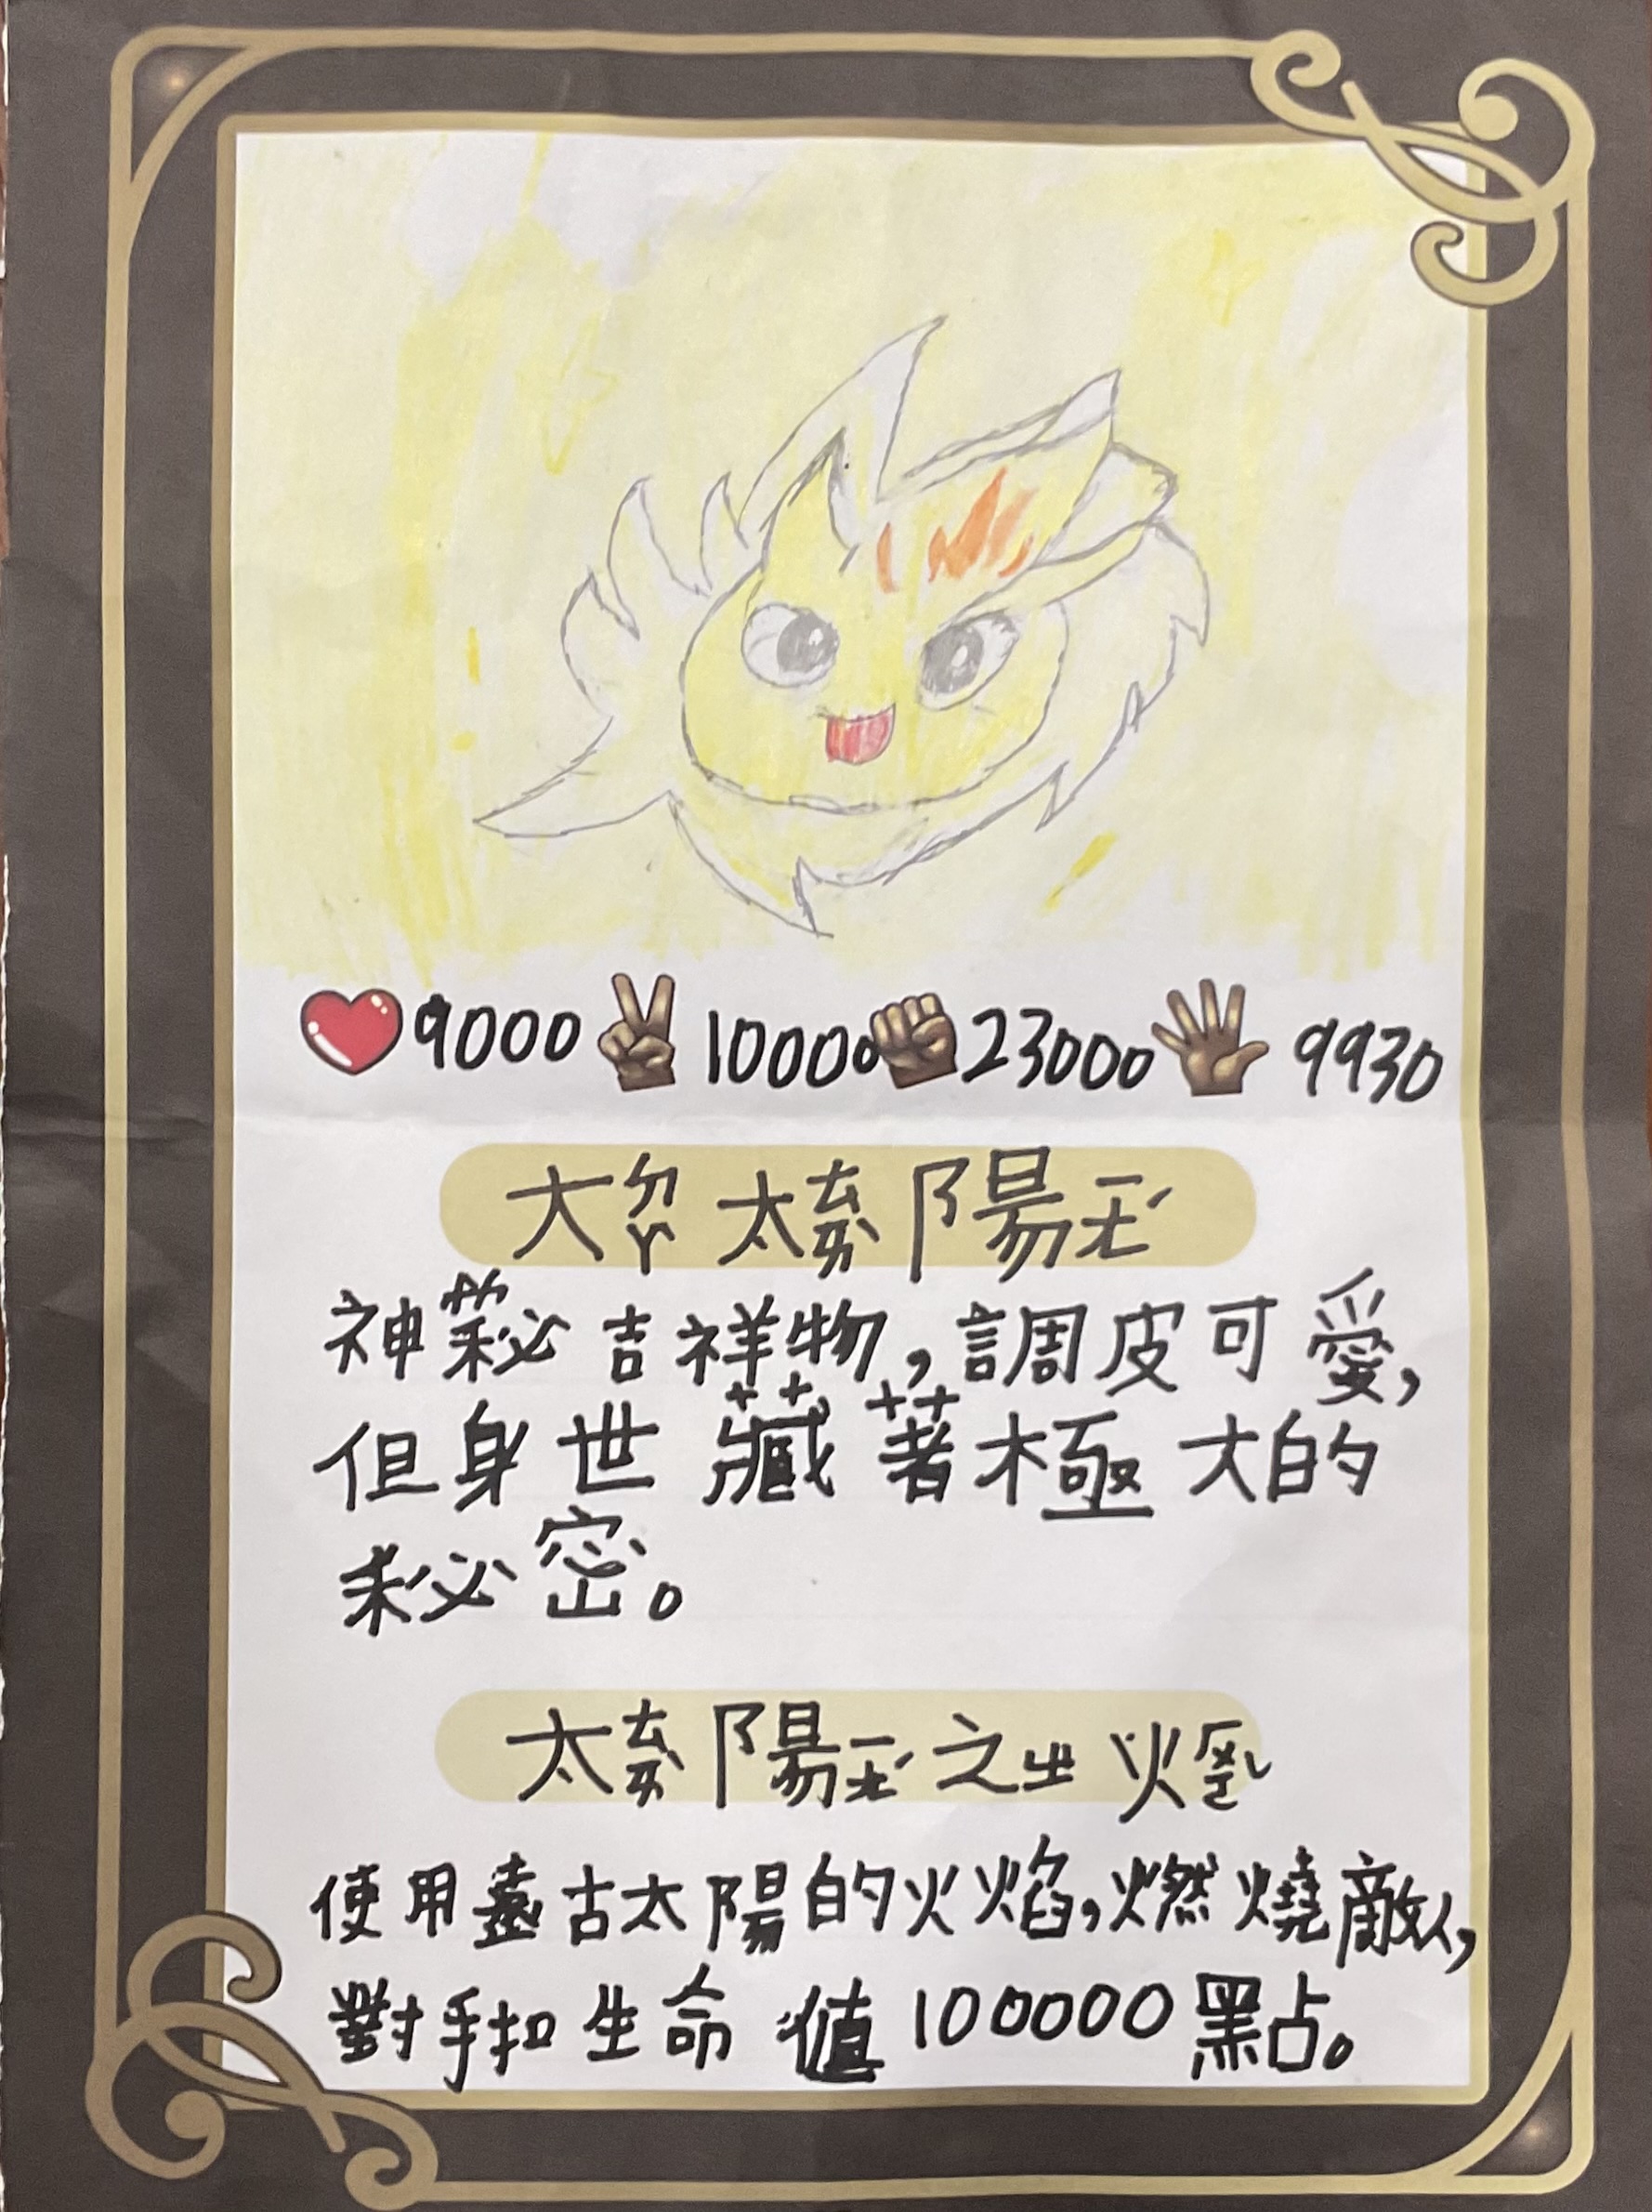 9000 10000 23000 9930
大 太陽
神秘吉祥物,調皮可愛,
但身世藏著極大的
秘密。
太陽之火
使用遠古太陽的火焰,燃燒敵人,
對手扣生命值100000點。